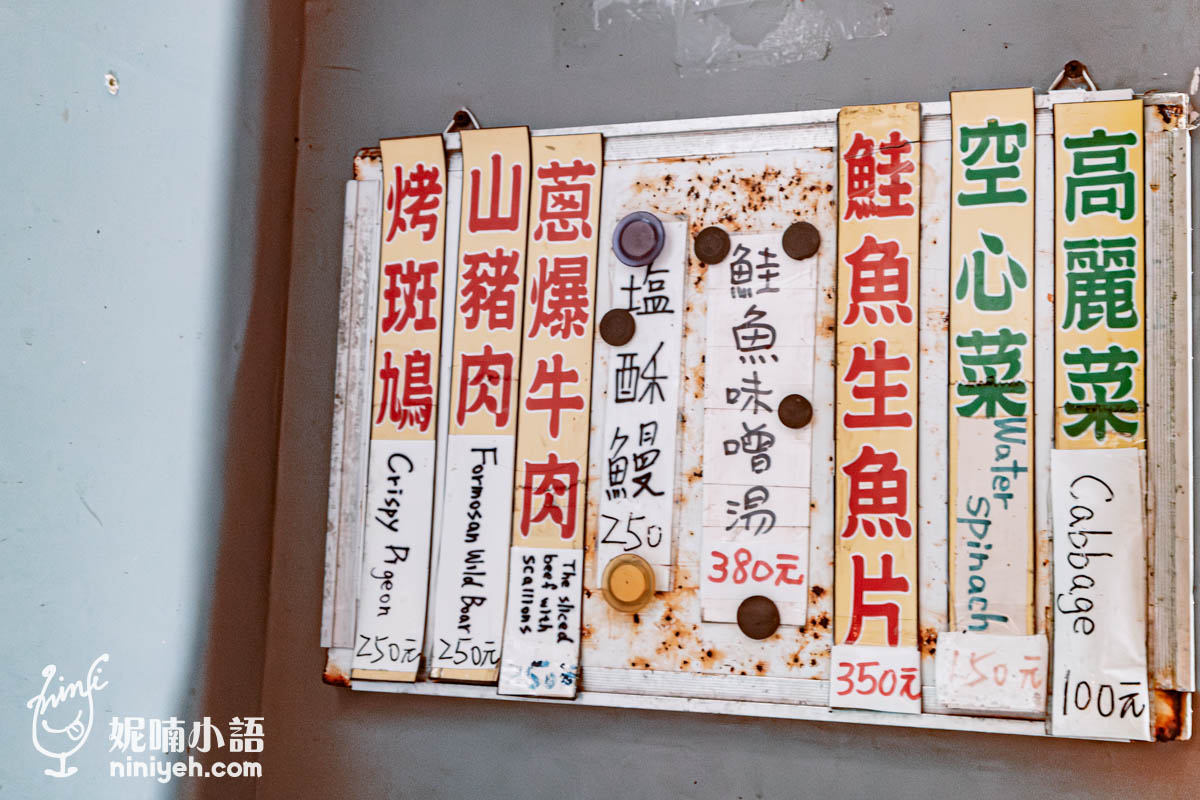 烤斑鳩
Crispy Pigeon
250元
山豬肉
Formosan Wild Boar
250元
蔥爆牛肉
The sliced
beef with
scallions
塩酥鰻
250
鮭魚味噌湯
380元
鮭魚生魚片
350元
空心菜
Water
spinach
150元
高麗菜
Cabbage
100元
妮喃小語
niniyeh.com